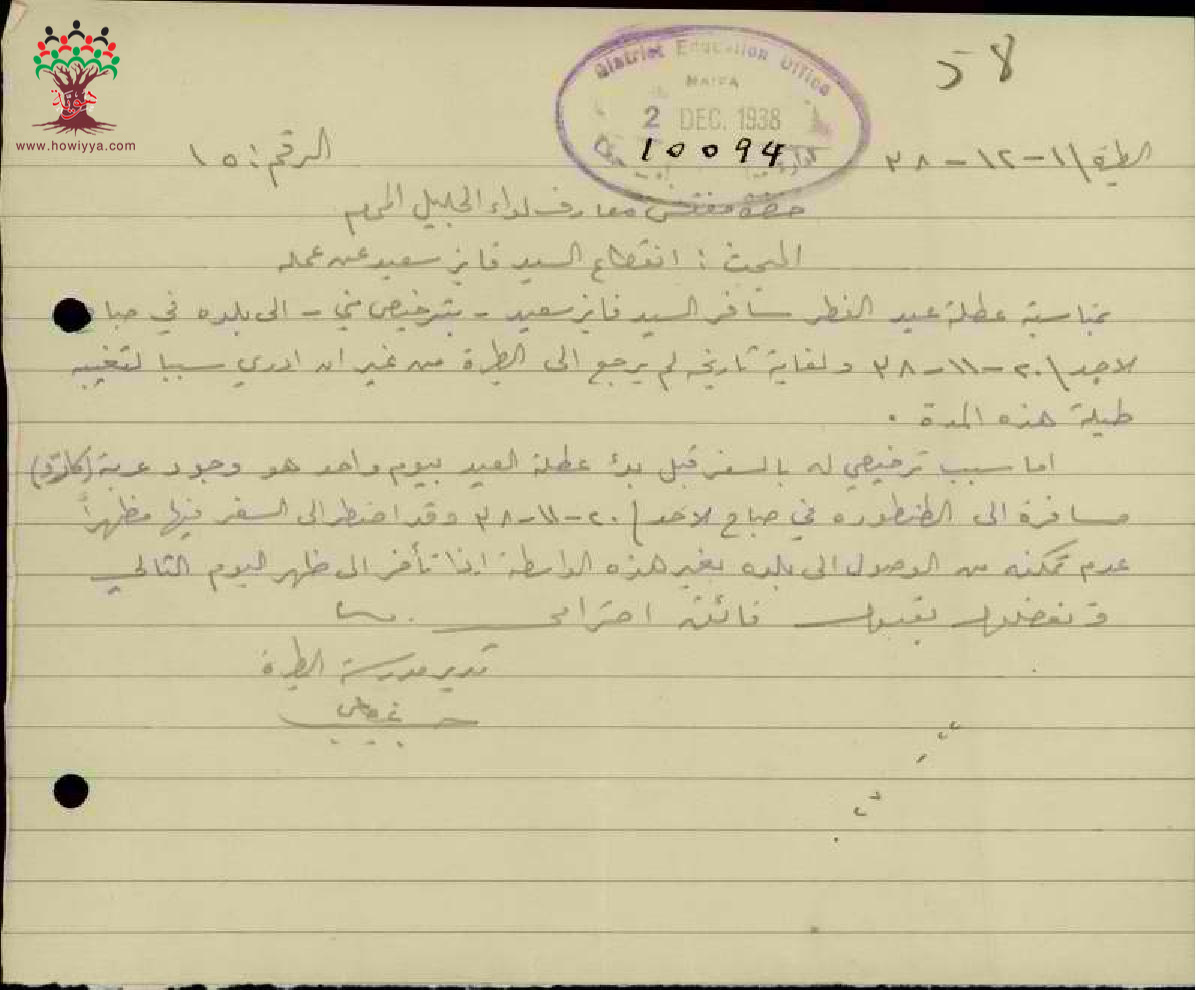 هوية
www.howiyya.com
District Education Office
HAIFA
2 DEC. 1938
10094
58
الطيرة / ١-١٢-٣٨
الرقم: ١٥
حضرة مفتش معارف لواء الجليل المحترم
المبحث: انقطاع السيد فايز سعيد عن عمله
بمناسبة عطلة عيد الفطر سافر السيد فايز سعيد - بترخيص مني - الى بلده في صباح
الاحد / ٢٠-١١-٣٨ ولغاية تاريخه لم يرجع الى الطيرة من غير ان ادري سببا لتغيبه
طيلة هذه المدة .
اما سبب ترخيصي له بالسفر قبل بدء عطلة العيد بيوم واحد هو وجود عربة
مسافرة الى الطنطوره في صباح الاحد / ٢٠-١١-٣٨ وقد اضطر الى السفر فيها مظهراً
عدم تمكنه من الوصول الى بلده بغير هذه الواسطة اذا تأخر الى ظهر اليوم التالي
وتفضلوا بقبول فائق احترامي .
مدير مدرسة الطيرة